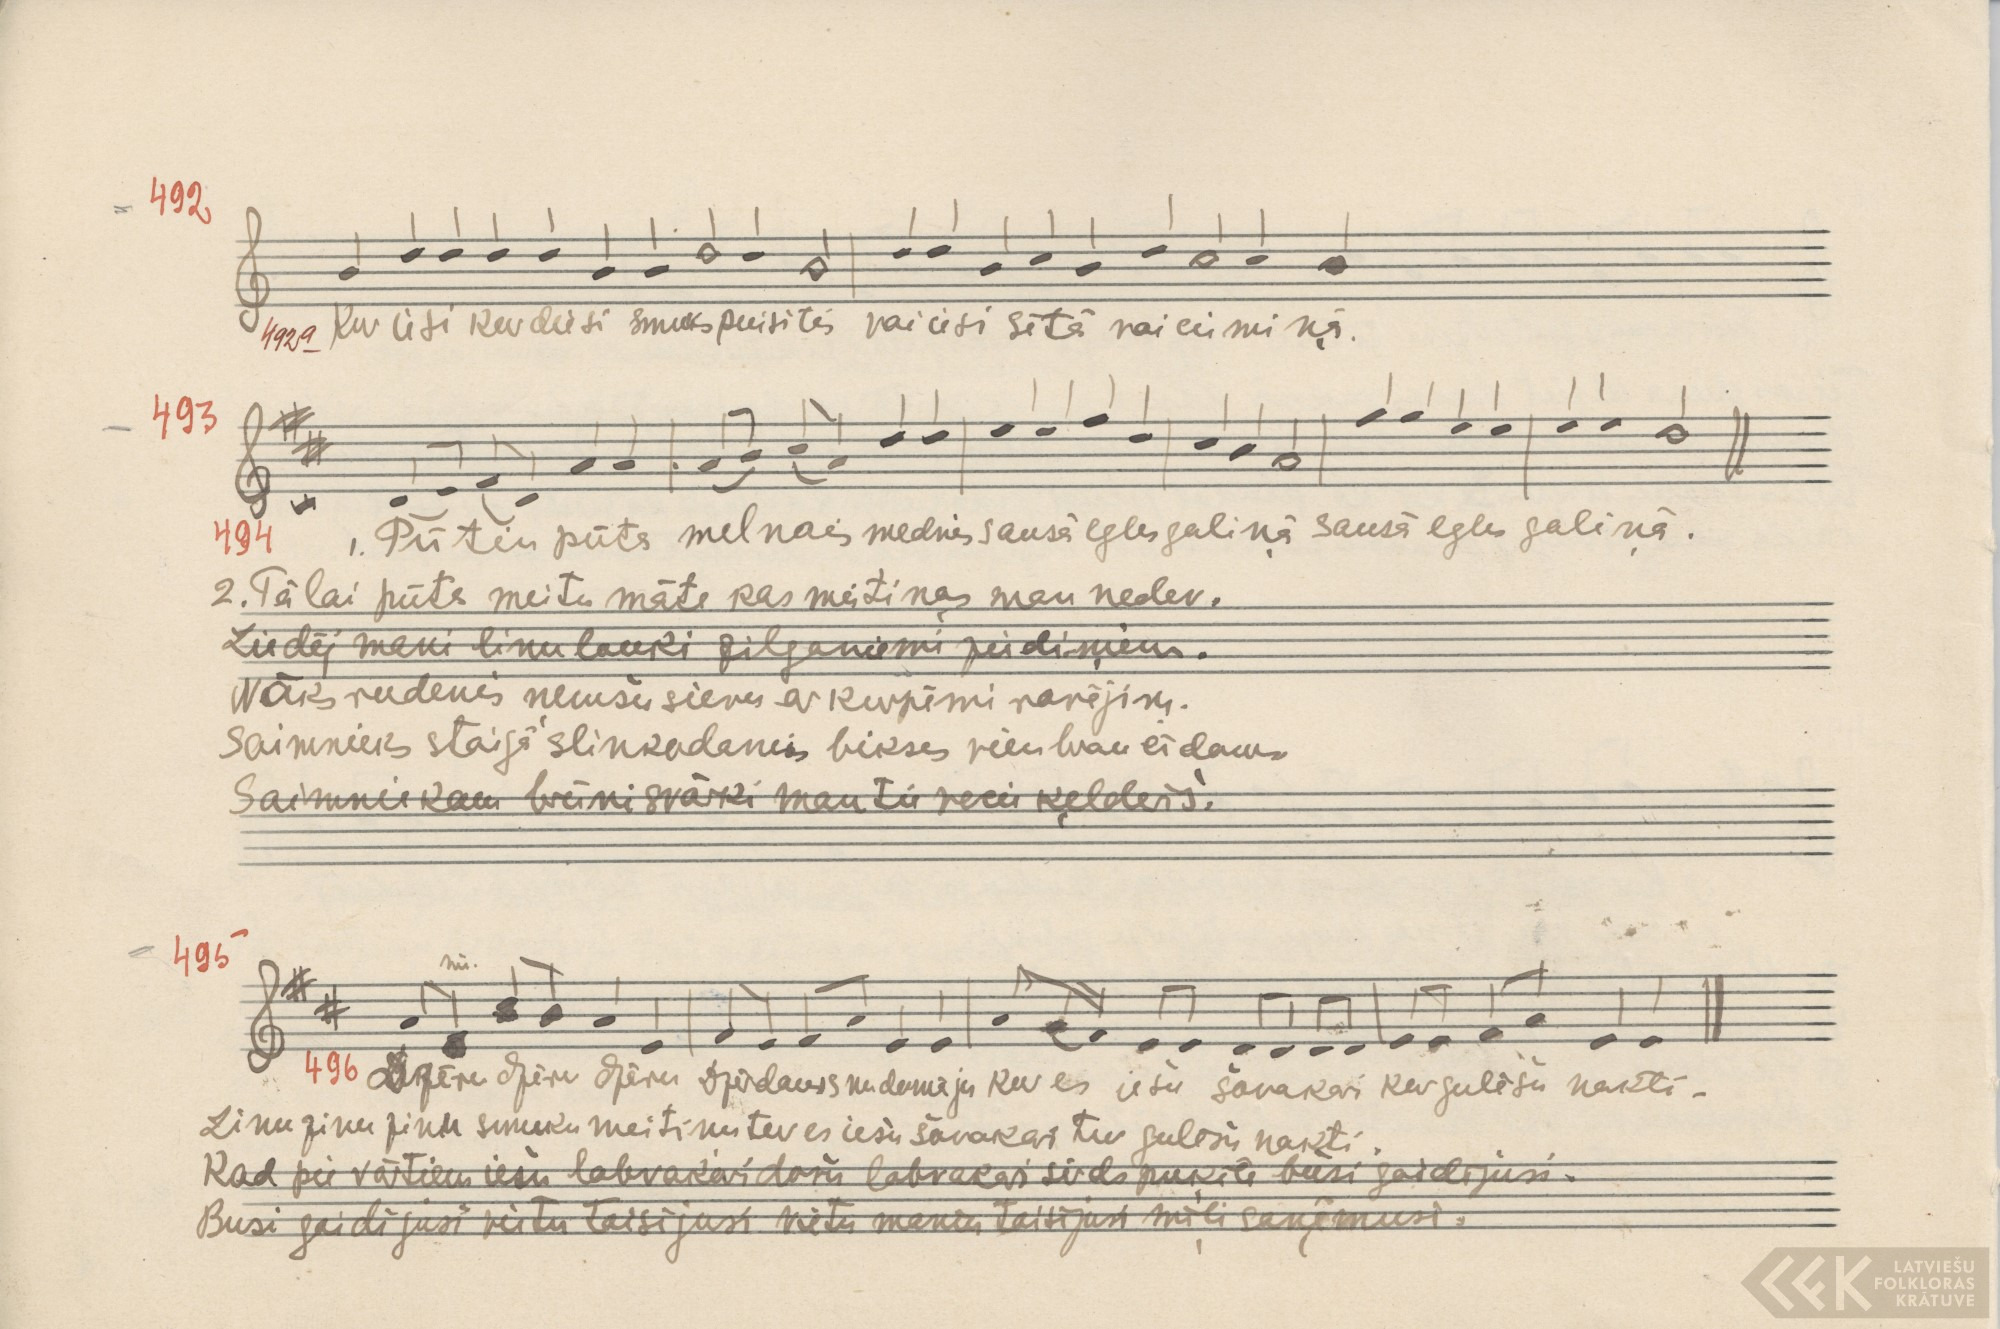 492
492a Kur iesi kur dusi smuks puisitis vai iesi sētā vai ciemi ņā.
493
494 1. Pūtin pūta melnais mednis sausā egles galiņā sausā egles galiņā.
2. Tā lai pūta meitu māte kas meitiņas man nedev.
Ziedēj mani linu lauki zilganiemi ziediņiem.
Nāks rudenis nemšu sievu ar kurpēmi
Saimnieks staigā slinkodamis bikses vien
Saimniekam brūni svārki man tie veci ķelderiš.
495
496 Dzēru dzēru dzēru dzērdams nu domāju kur es iešu šovakari kur gulēšu nakti.
Zinu zinu zinu smuku meitinu tur es iešu šovakari tur gulēšu nakti.
Kad pie vārtiem iešu labvakari došu labvakari sirds puķite būsi gaidijusi.
Busi gaidijusi vietu taisijusi vietu taisijusi mīļi saņēmusi.
LATVIEŠU
FOLKLORAS
KRĀTUVE